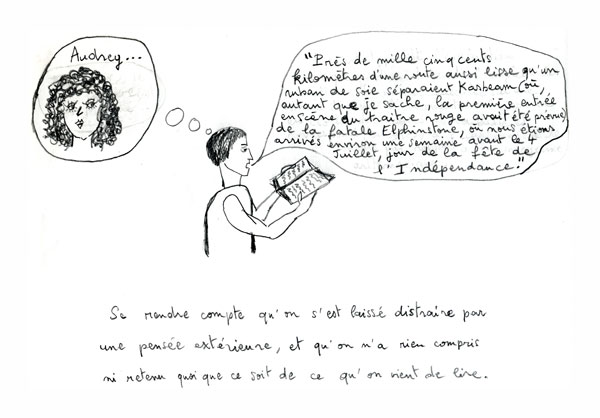 Audrey...
"Près de mille cinq cents
kilomètres d'une route aussi lisse qu'un
ruban de soie séparaient Kasbeam (où,
autant que je sache, la première entrée
en scène du traître rouge avait été prévue)
de la fatale Elphinstone, où nous étions
arrivés environ une semaine avant le 4
Juillet, jour de la fête de
l'Indépendance."
Se rendre compte qu'on s'est laissé distraire par
une pensée extérieure, et qu'on n'a rien compris
ni retenu quoi que ce soit de ce qu'on vient de lire.